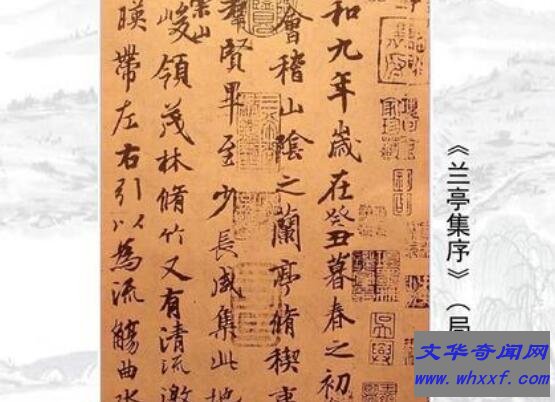 和九年歲在癸丑暮春之初
會稽山陰之蘭亭脩稧事
羣賢畢至少長咸集此地
崇山
峻領茂林脩竹又有清流激
暎帶左右引以為流觴曲水
《兰亭集序》（局
文华奇闻网
www.whxxf.com